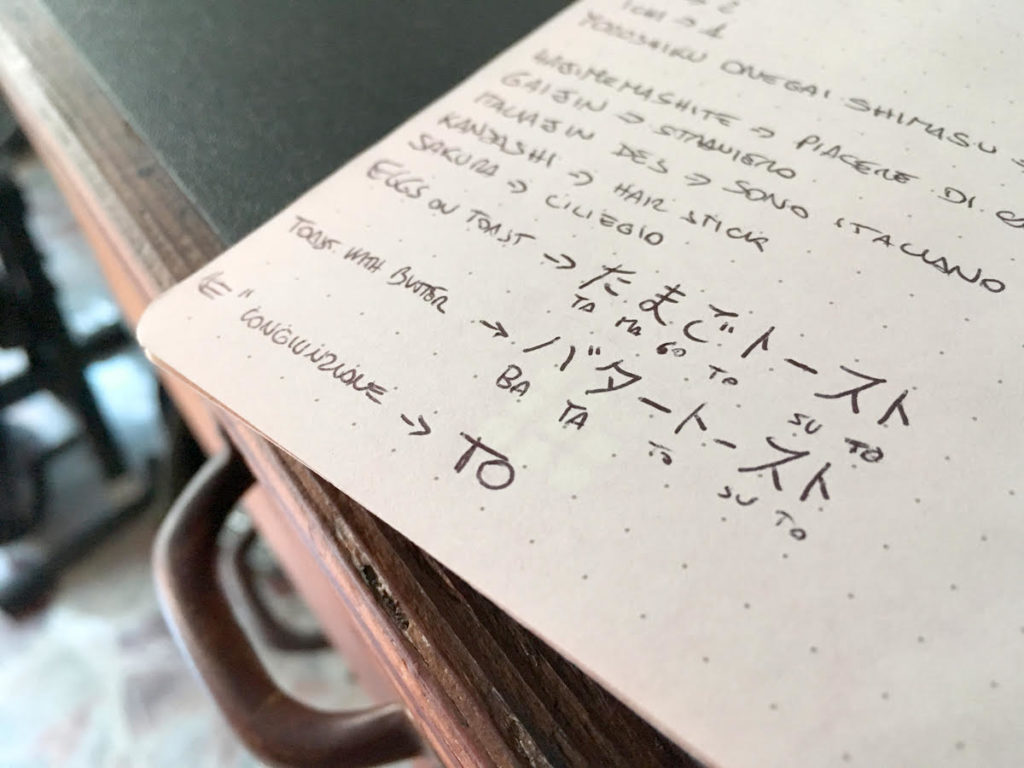 YOROSHIKU ONEGAI SHIMASU
HAJIMEMASHITE → PIACERE DI
GAIJIN → STRANIERO
ITALIAJIN DES → SONO ITALIANO
KANDASHI → HAIR STICK
SAKURA → CILIEGIO
EGGS ON TOAST → たまごトースト
TA MA GO TO SU TO
TOAST WITH BUTTER → バタートースト
BA TA TO SU TO
"E" CONGIUNZIONE → TO